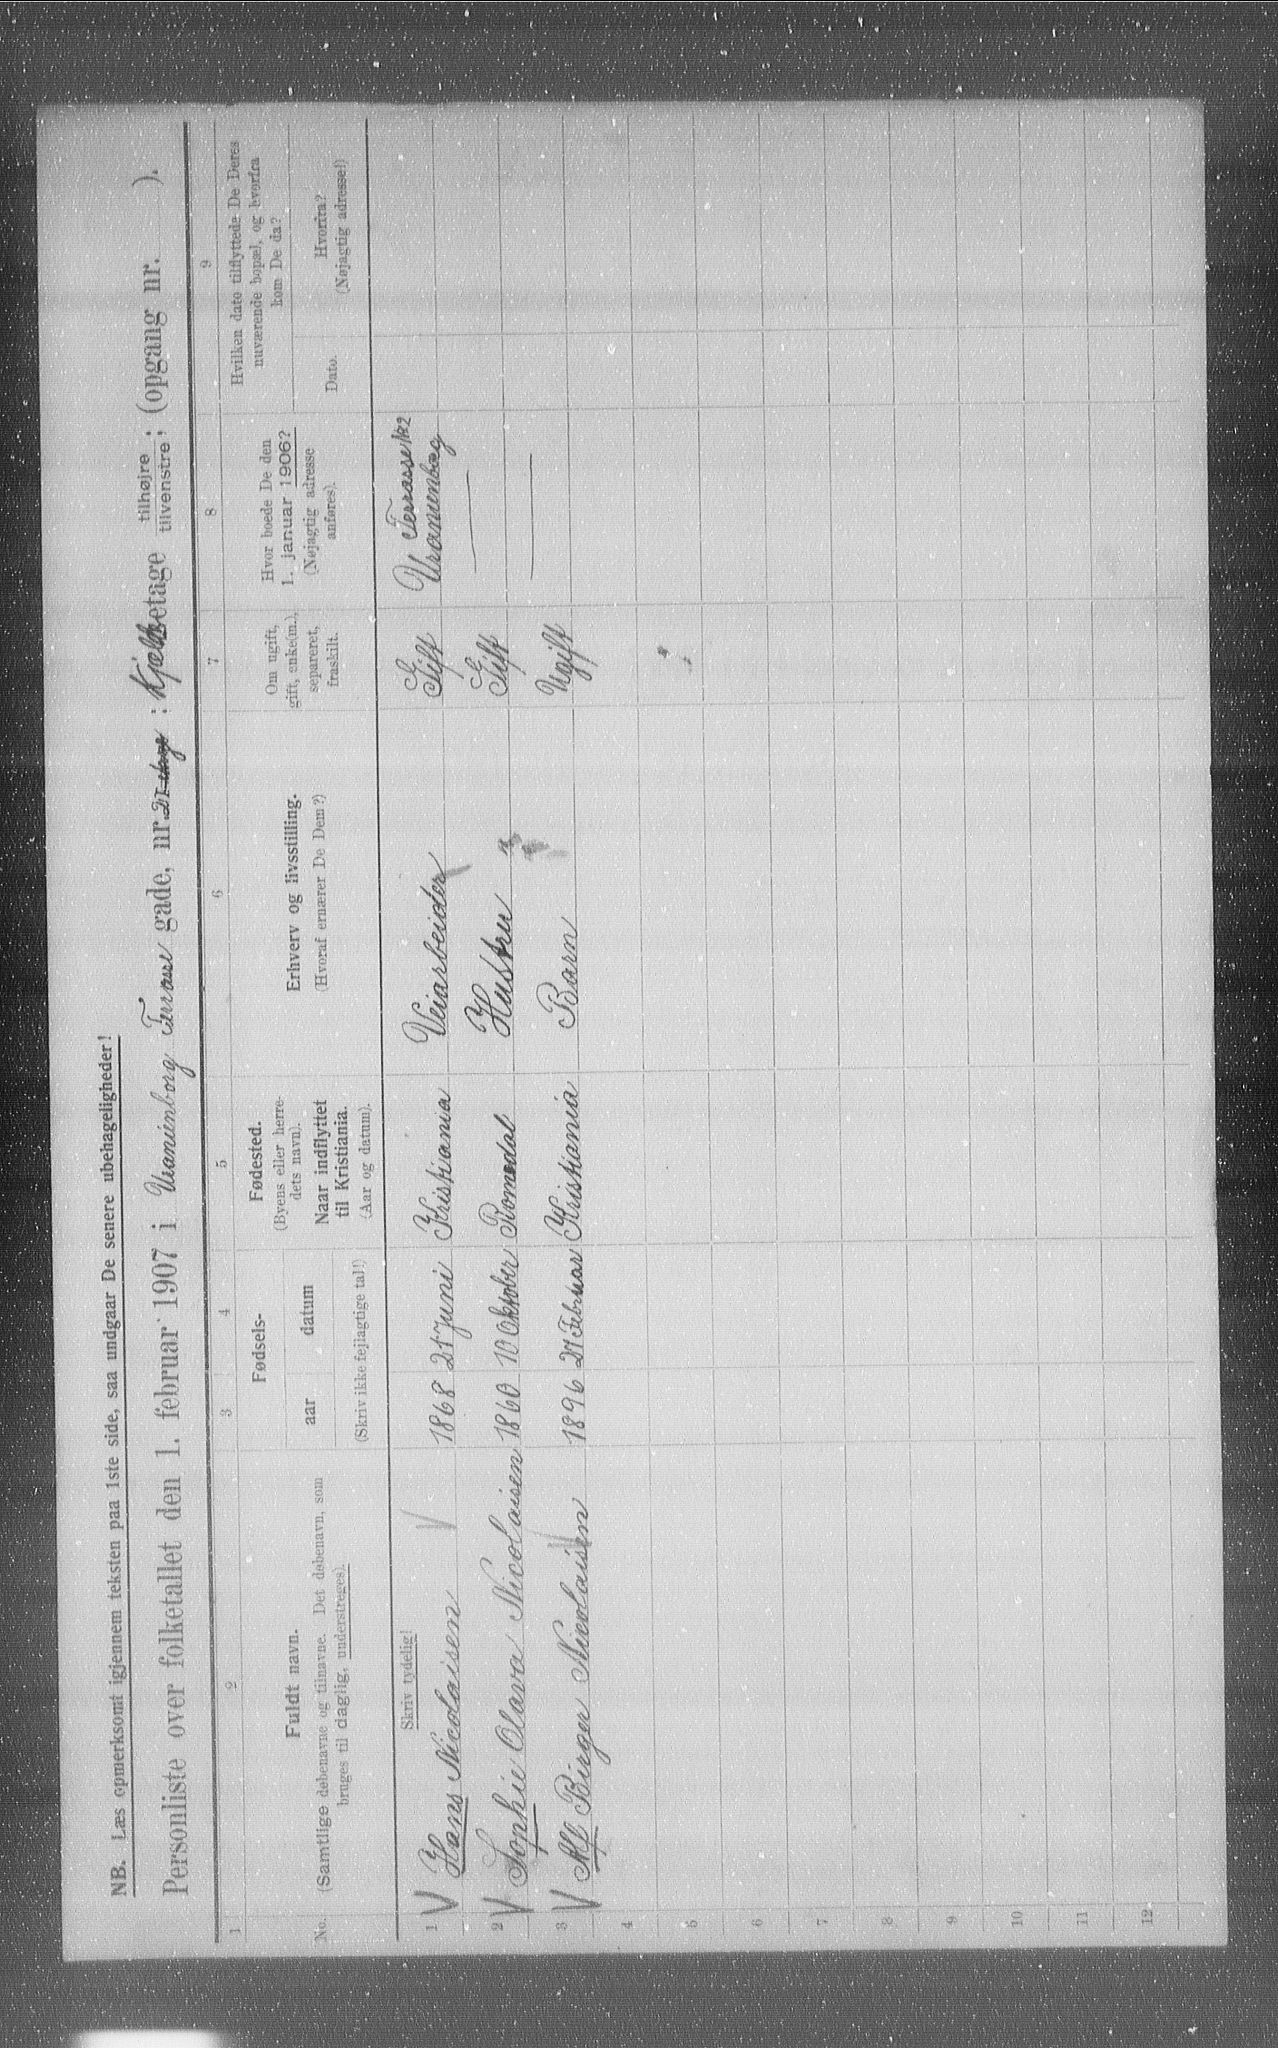 NB. Læs opmerksomt igjennem teksten paa 1ste side, saa undgaar De senere ubehageligheder!
Personliste over folketallet den 1. februar 1907 i Uranienborg Terrasse gade, nr. : Kjælderetage tilhøjre tilvenstre; (opgang nr. ).
1 2 3 4 5 6 7 8 9
No. Fuldt navn. (Samtlige døbenavne og tilnavne. Det døbenavn, som bruges til daglig, understreges).
Fødsels- aar datum (Skriv ikke fejlagtige tal!)
Fødested. (Byens eller herredets navn). Naar indflyttet til Kristiania. (Aar og datum).
Erhverv og livsstilling. (Hvoraf ernærer De Dem?)
Om ugift, gift, enke(m.), separeret, fraskilt.
Hvor boede De den 1. januar 1906? (Nøjagtig adresse anføres).
Hvilken dato tilflyttede De Deres nuværende bopæl, og hvorfra kom De da?
Dato. Hvorfra? (Nøjagtig adresse!)
Skriv tydelig!
1 V Hans Nicolaisen V 1868 21 juni Kristiania Veiarbeider Gift U Terrasse Uranienborg
2 V Sophie Olava Nicolaisen 1860 10 Oktober Romedal Hustru Gift —
3 V Alf Birger Nicolaisen 1896 Februar Kristiania Barn Ugift —
4
5
6
7
8
9
10
11
12